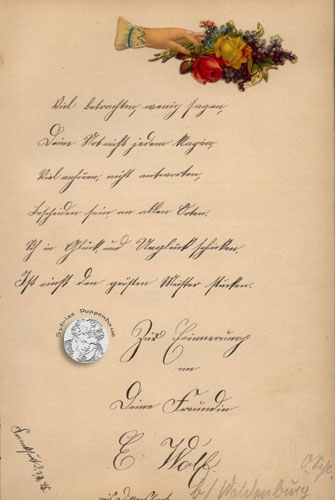 Viel betrachten, wenig sagen,
Deine Not nicht jedem klagen,
Viel anhören, nicht antworten,
Bescheiden sein an allen Orten.
Sich in Glück und Unglück schicken,
Ist eines der größten Meister stücken.
Sylvias Puppenhaus
Zur Erinnerung
an
Deine Freundin
E. Wolf.
b/ Wildenburg